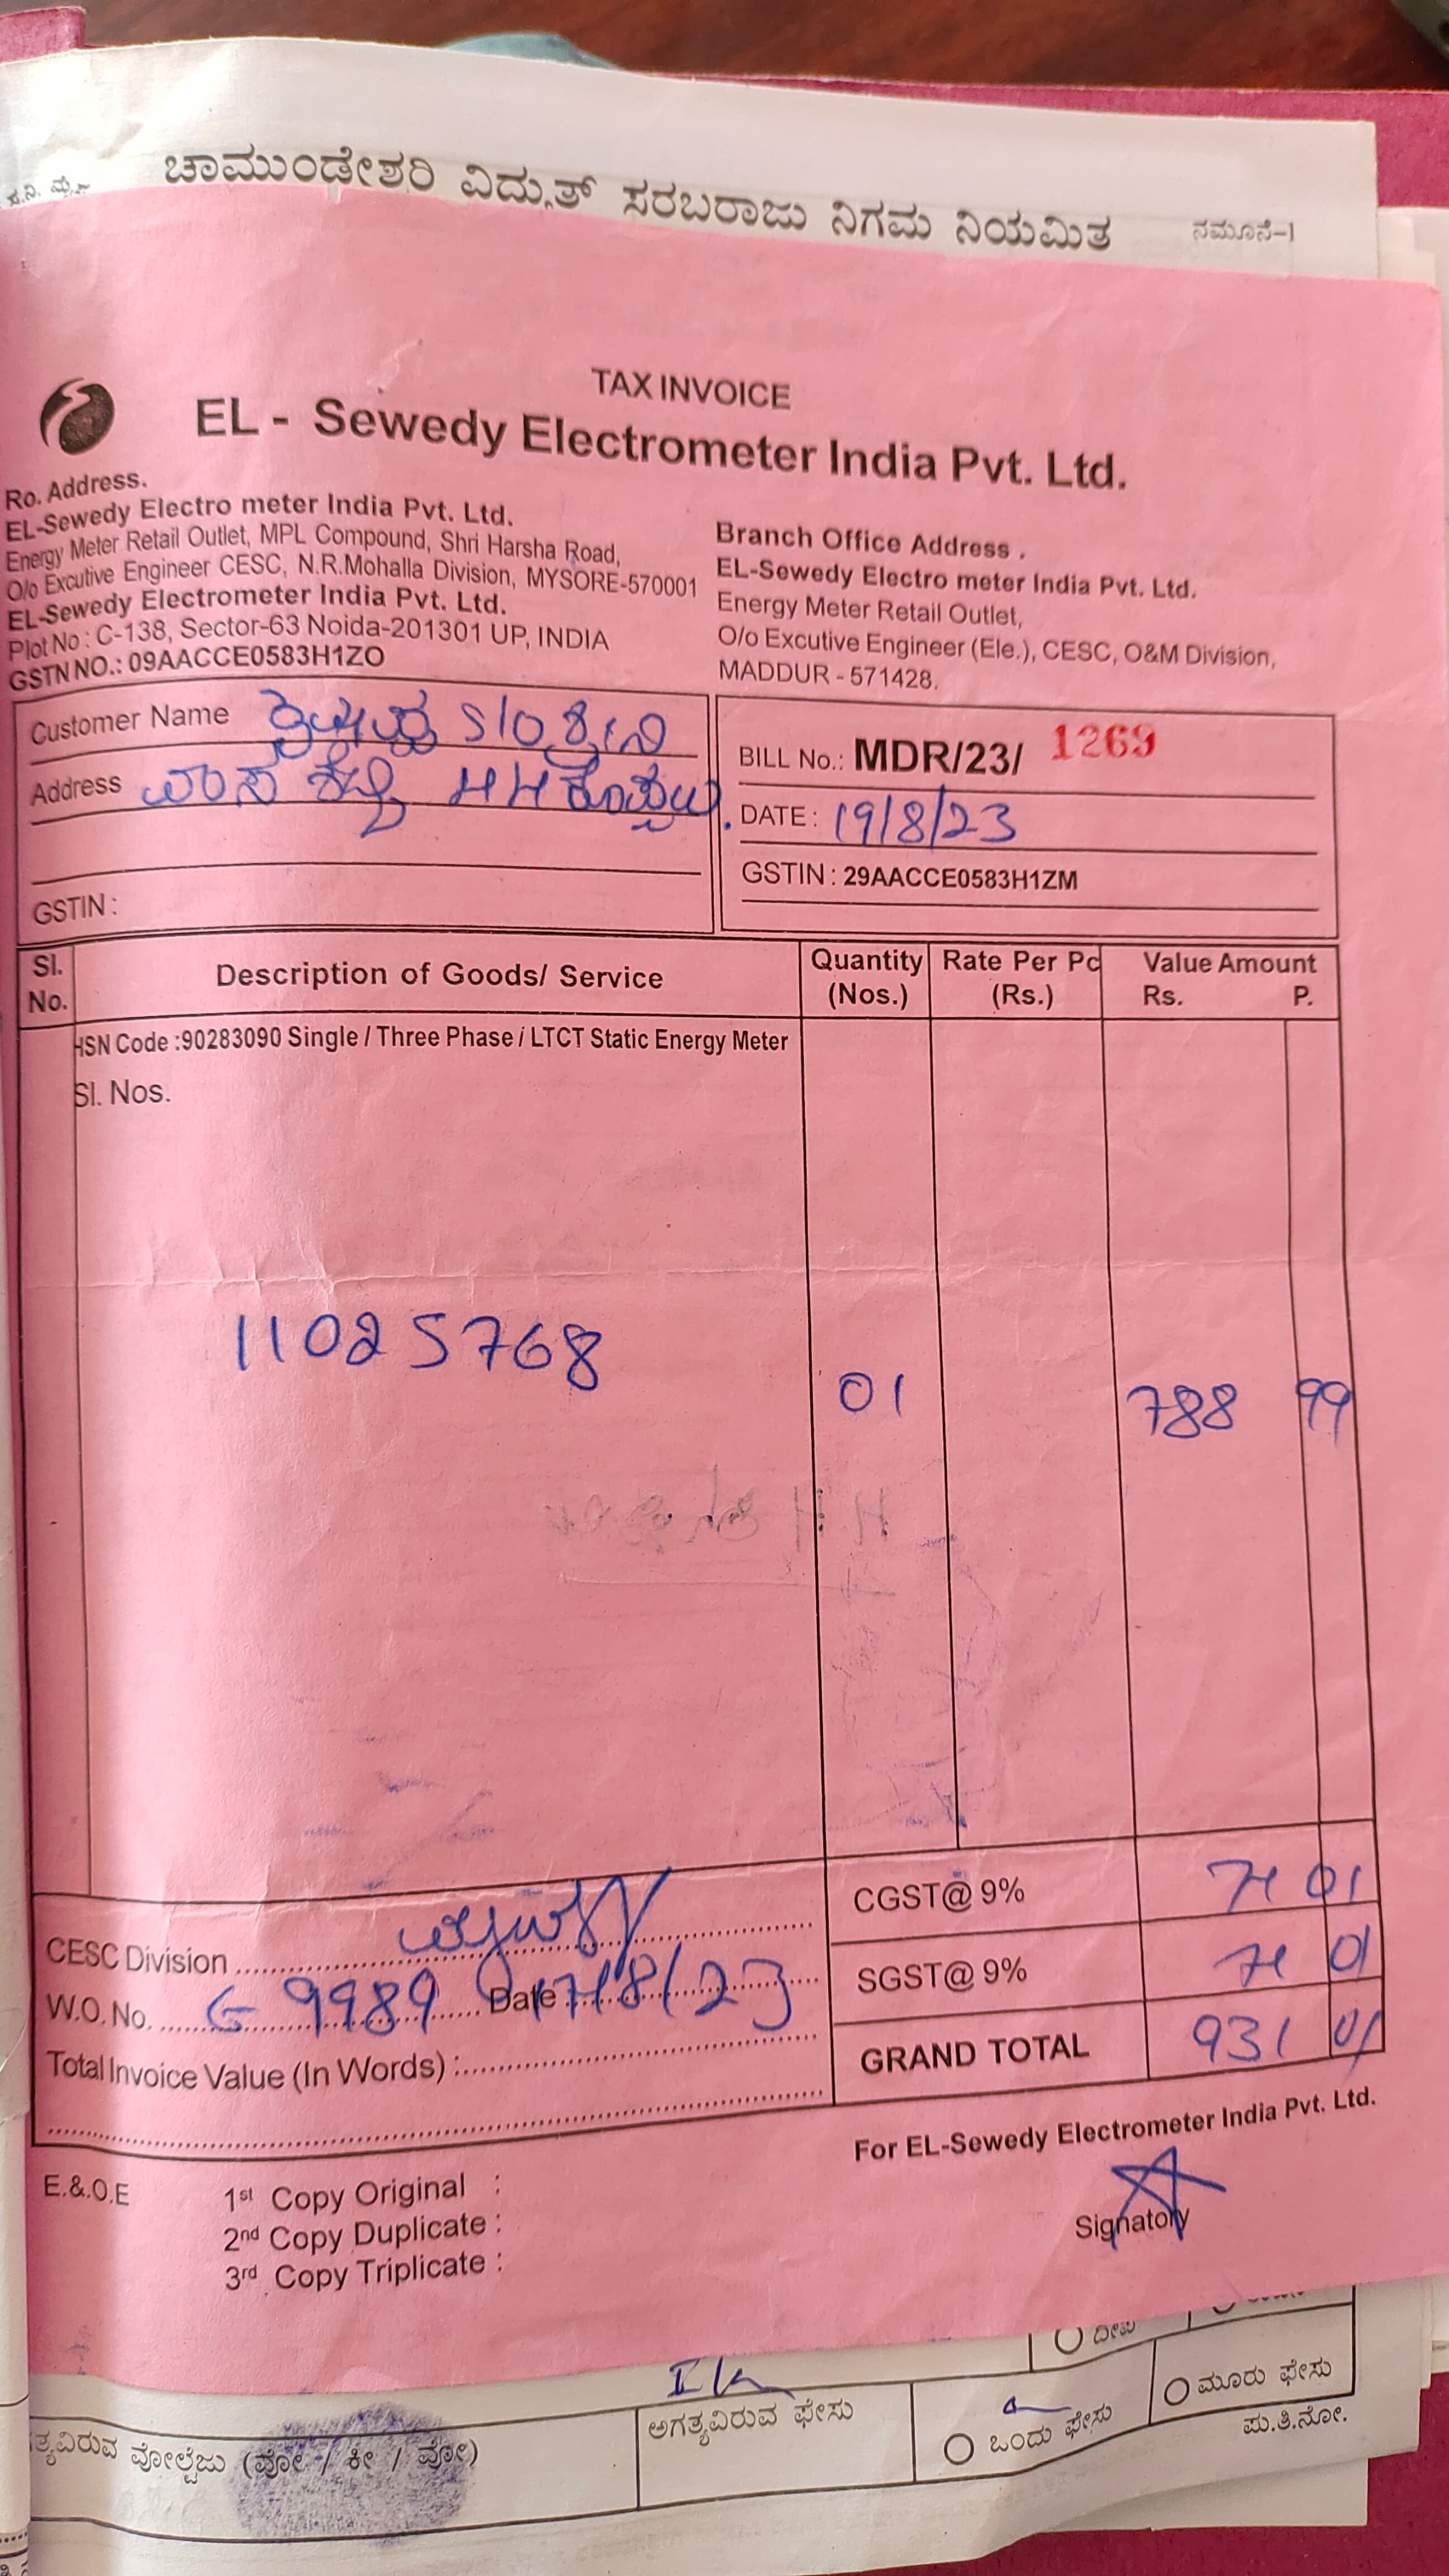 ಚಾಮುಂಡೇಶ್ವರಿ ವಿದ್ಯುತ್ ಸರಬರಾಜು ನಿಗಮ ನಿಯಮಿತ
ನಮೂನೆ-1
TAX INVOICE
EL - Sewedy Electrometer India Pvt. Ltd.
Ro. Address.
EL-Sewedy Electro meter India Pvt. Ltd.
Energy Meter Retail Outlet, MPL Compound, Shri Harsha Road,
O/o Excutive Engineer CESC, N.R.Mohalla Division, MYSORE-570001
EL-Sewedy Electrometer India Pvt. Ltd.
Plot No : C-138, Sector-63 Noida-201301 UP, INDIA
GSTN NO.: 09AACCE0583H1ZO
Branch Office Address .
EL-Sewedy Electro meter India Pvt. Ltd.
Energy Meter Retail Outlet,
O/o Excutive Engineer (Ele.), CESC, O&M Division,
MADDUR - 571428.
Customer Name S/O
Address HH
GSTIN :
BILL No.: MDR/23/ 1269
DATE : 19/8/23
GSTIN : 29AACCE0583H1ZM
Sl. No. Description of Goods/ Service Quantity (Nos.) Rate Per Pc (Rs.) Value Amount Rs. P.
HSN Code :90283090 Single / Three Phase / LTCT Static Energy Meter
Sl. Nos.
11025768 01 788 99
CGST@ 9% 71 01
SGST@ 9% 71 01
GRAND TOTAL 931 01
CESC Division
W.O. No. G 9989 Date 17/8/23
Total Invoice Value (In Words) :
For EL-Sewedy Electrometer India Pvt. Ltd.
Signatory
E.&.O.E
1st Copy Original :
2nd Copy Duplicate :
3rd Copy Triplicate :
ಅಗತ್ಯವಿರುವ ಫೇಸು
ಒಂದು ಫೇಸು
ಮೂರು ಫೇಸು
ಪು.ತಿ.ನೋ.